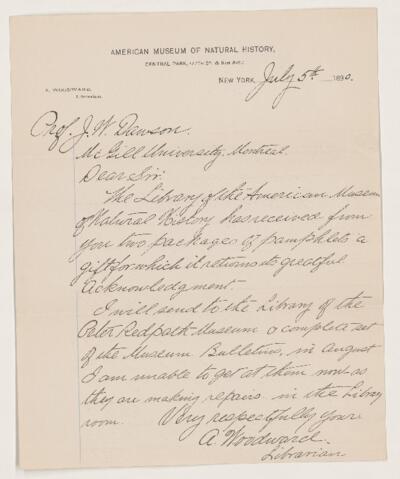 AMERICAN MUSEUM OF NATURAL HISTORY,
CENTRAL PARK, (77TH ST. & 8TH AVE.)
NEW YORK, July 5th 1890.
A. WOODWARD,
Librarian.
Prof. J. W. Dawson.
Mc Gill University, Montreal.
Dear Sir:
The Library of the American Museum
of Natural History has received from
you two packages of pamphlets a
gift for which it returns its grateful
acknowledgment.
I will send to the Library of the
Peter Redpath Museum a complete set
of the Museum Bulletins, in August
I am unable to get at them now as
they are making repairs in the Library
room. Very respectfully yours
A. Woodward.
Librarian